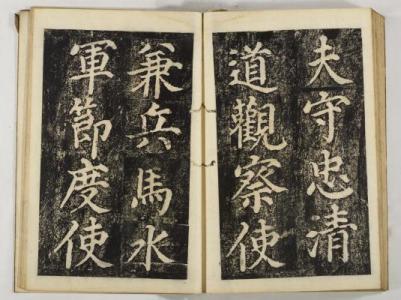 夫守忠清
道觀察使
兼兵馬水
軍節度使